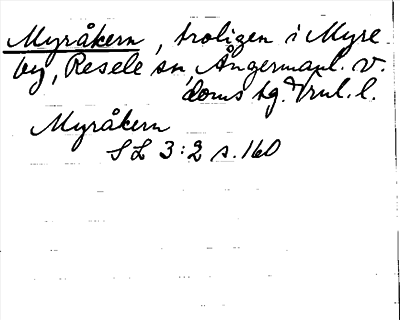 Myråkern, troligen i Myre
by, Resele sn, Ångermanl. v.
doms hg. Vnl. l.
Myråkern
SL 3:2 s. 160